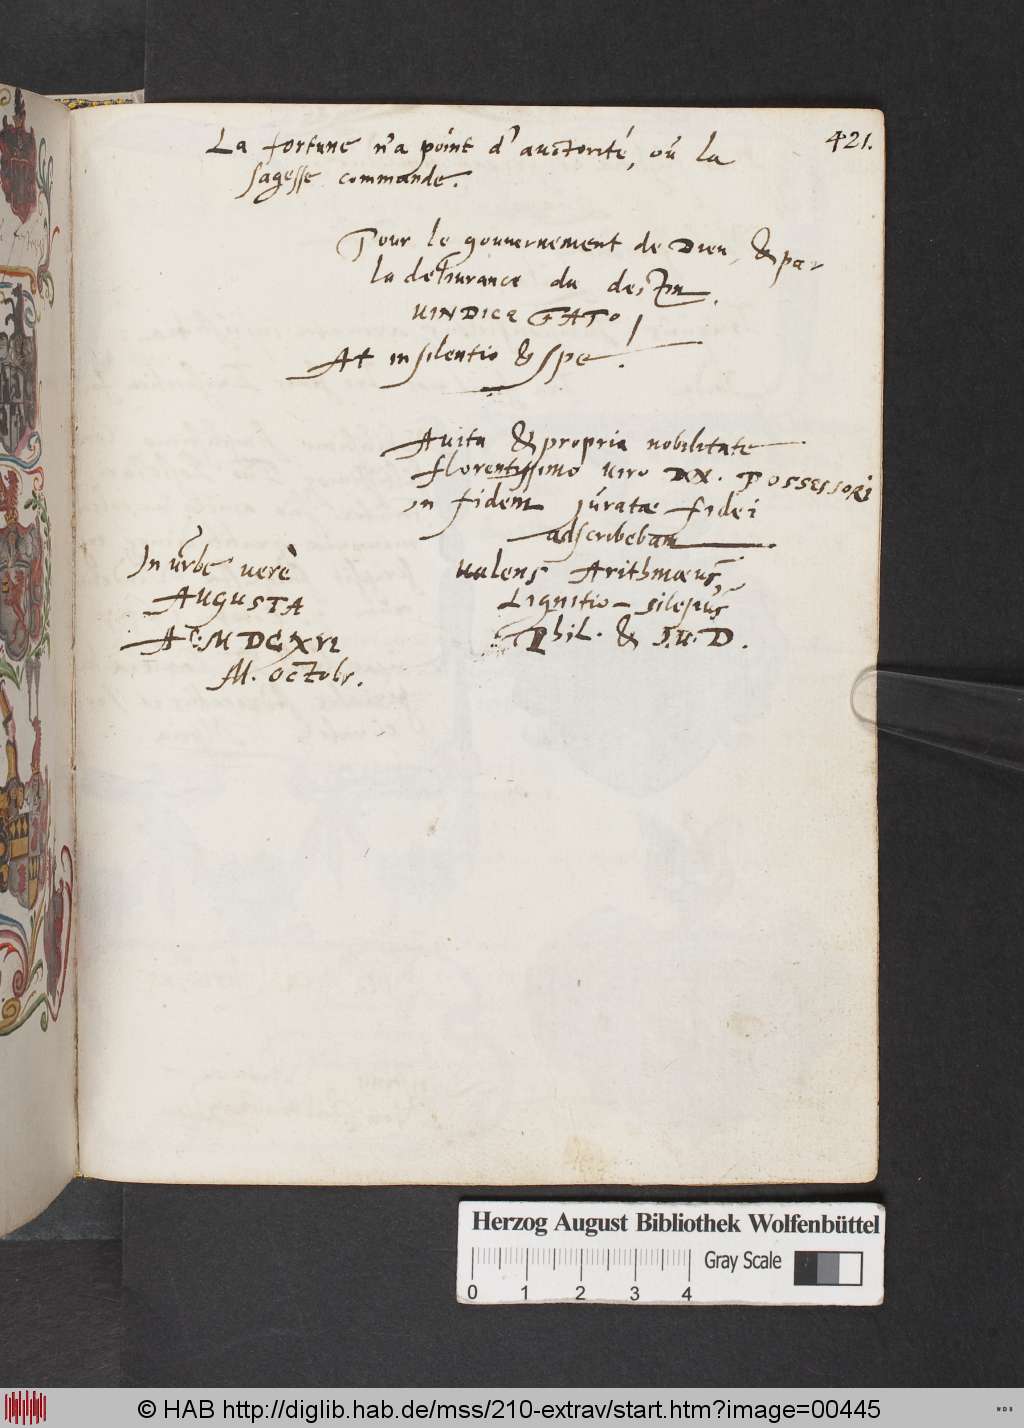 421.
La fortune n'a point d'auctorité, où la
sagesse commande.
Pour le gouvernement de Dieu, & par
la delivrance du destin.
VINDICE FATO!
At in silentio & spe!
Avita & propria nobilitate
florentissimo viro DN. POSSESSORI
in fidem juratae fidei
adscribebam
Valens Arithmæus,
Lignitio-Silesius
Phil. & J.U.D.
In urbe verè
AUGUSTA
A°. MDCXVI
M. Octobr.
Herzog August Bibliothek Wolfenbüttel
Gray Scale
0 1 2 3 4
© HAB http://diglib.hab.de/mss/210-extrav/start.htm?image=00445